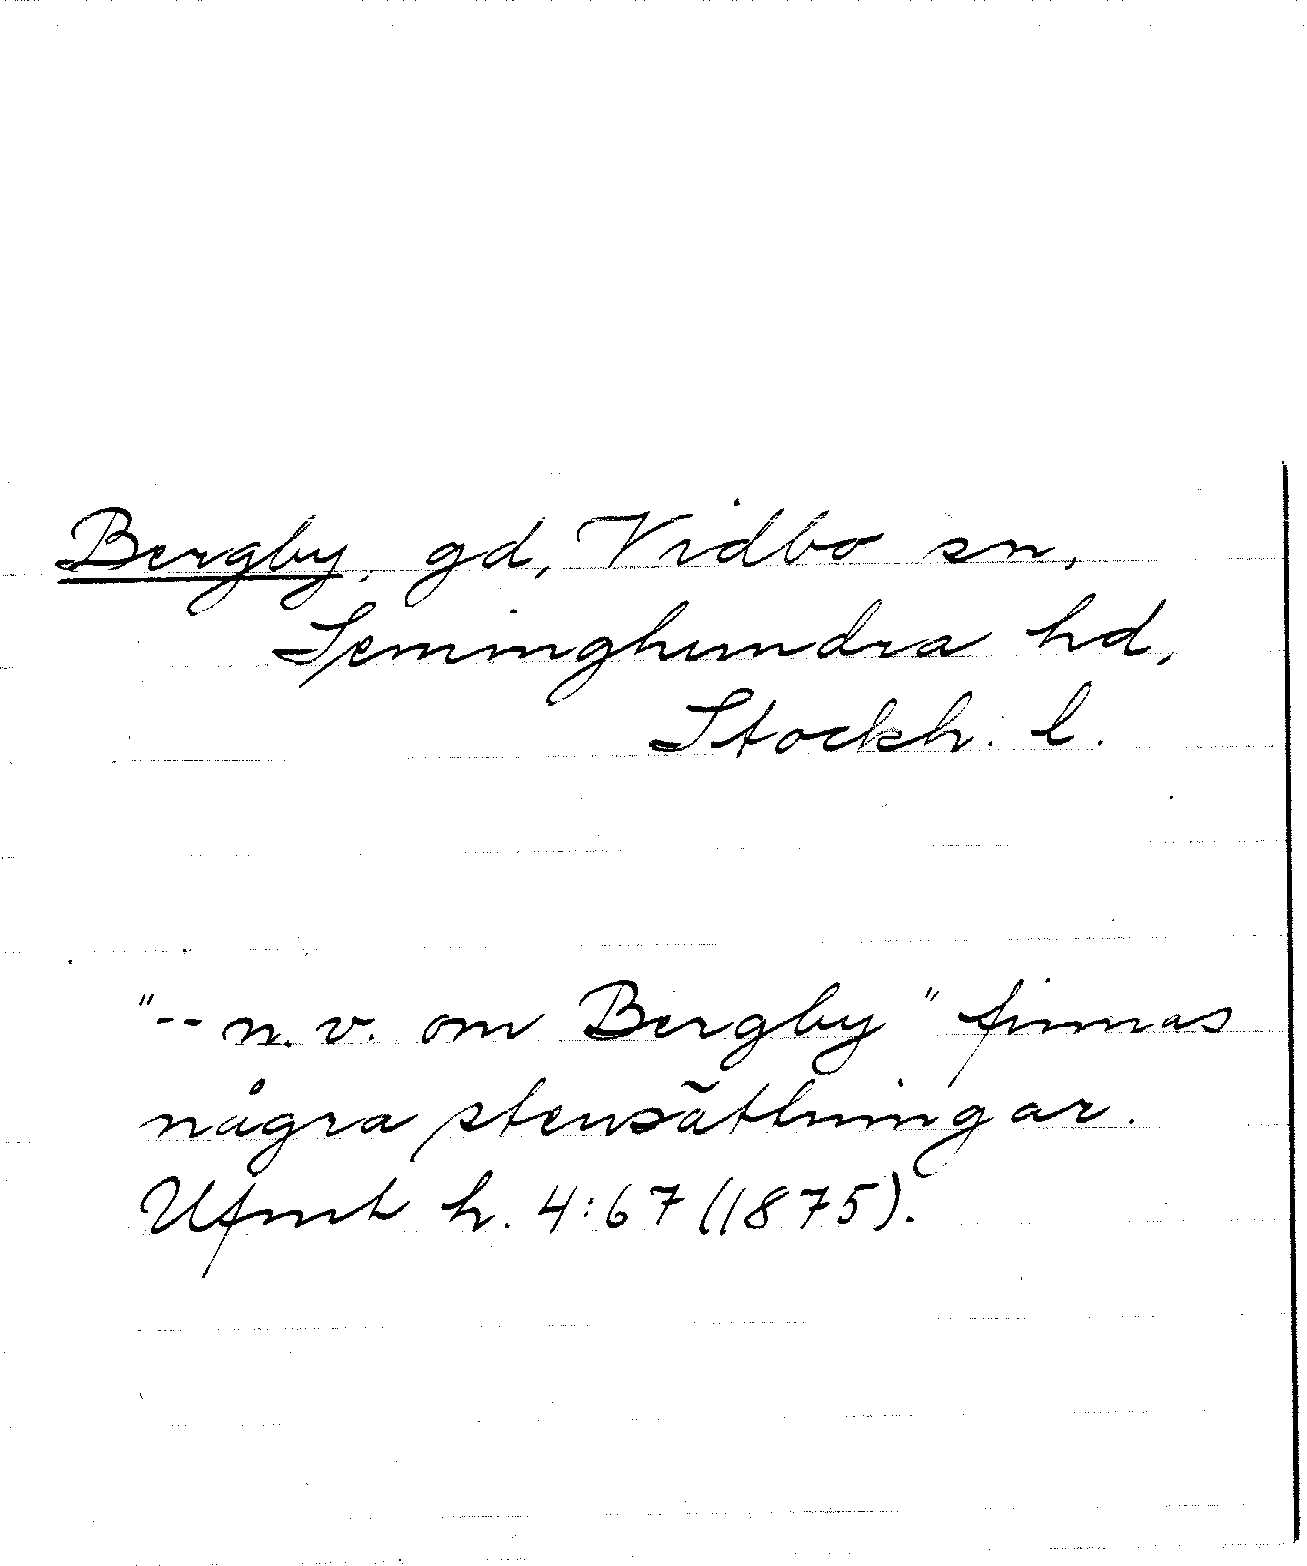 Bergby, gd, Vidbo sn,
Seminghundra hd,
Stockh. l.
"-- n.v. om Bergby" finnas
några stensättningar.
Ufmt h. 4:67 (1875).